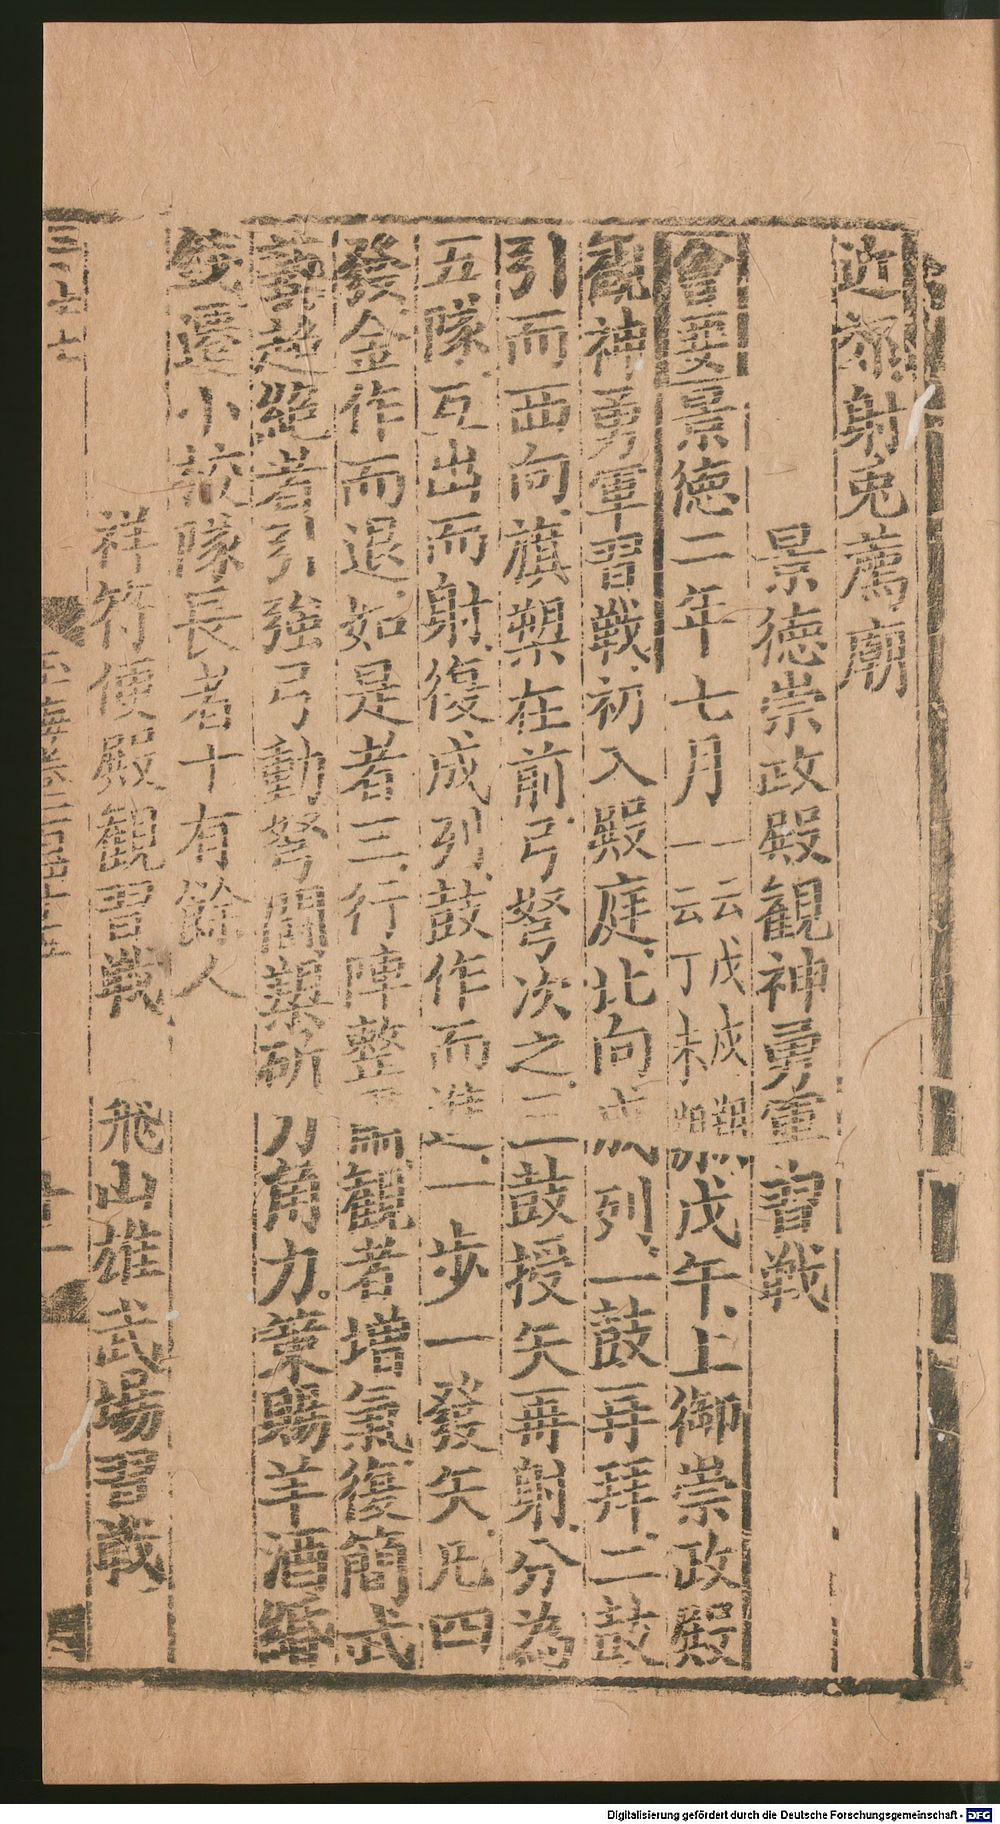 近郊射兎薦廟
景德崇政殿観神勇軍習戰
會要景德二年七月一云戊戌朔一云丁未朔戊午上御崇政殿
觀神勇軍習戰初入殿庭北向成列一鼓再拜二鼓
引而西向旗槊在前弓弩次之三鼓授矢再射分為
五隊互出而射復成列鼓作而進一步一發矢凡四
發金作而退如是者三行陣整肅觀者增氣復簡武
藝超絕者引強弓動弩開槊斫刀角力策賜羊酒緡
錢遷小校隊長者十有餘人
祥符便殿観習戰 飛山雄武場習戰
玉海卷
Digitalisierung gefördert durch die Deutsche Forschungsgemeinschaft - DFG